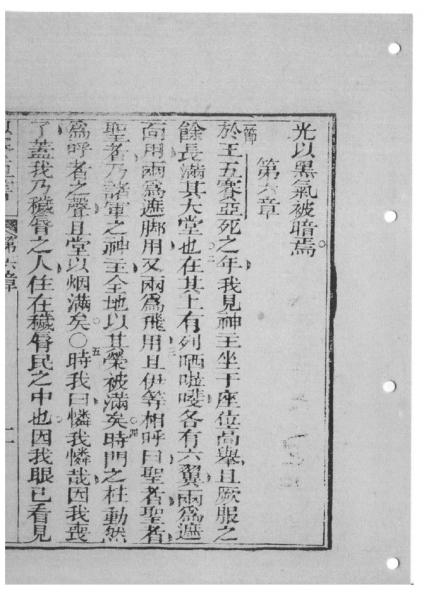 光以黑氣被暗焉
第六章
一節
於王五賽亞死之年我見神主坐于座位高舉且厥服之
餘長滿其大堂也二在其上有列哂啦㖿各有六翼兩爲遮
面用兩爲遮脚用又兩爲飛用三且伊等相呼曰聖者聖者
聖者乃諸軍之神主全地以其榮被滿矣四時門之柱動然
爲呼者之聲且堂以烟滿矣〇五時我曰憐我憐哉因我喪
了蓋我乃穢脣之人住在穢脣民之中也因我眼已看見
第六章